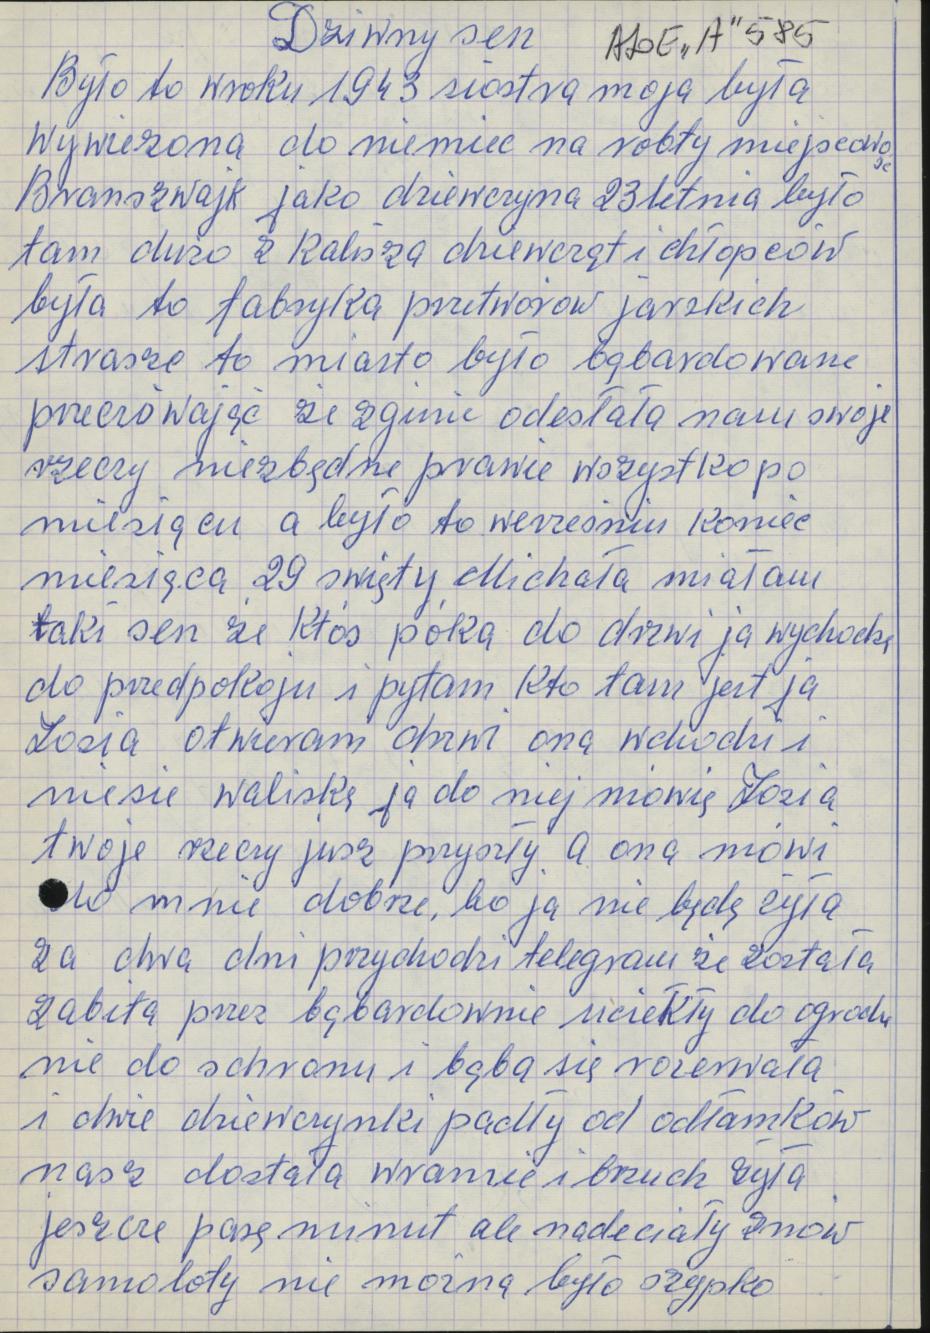 Dziwny sen AŁE „A" 585
Było to wroku 1943 siostra moja była
wywiezona do niemiec na robty miejscowo
sc
Branszwajk jako dziewczyna 23 letnia było
tam dużo z Kalisza dziewcząt i chłopców
była to fabryka przetworow jarskich
strasze to miasto było bąbardowane
przeczówając że zginie odesłała nam swoje
rzeczy niezbędne prawie wszystko po
miesiącu a było to wewrześniu koniec
miesiąca 29 święty Michała miałam
taki sen że ktoś póka do drzwi ja wychodzę
do przedpokoju i pytam kto tam jest ja
Zosia otwieram drzwi ona wchodzi i
niesie waliskę ja do niej mówię Zosia
twoje rzeczy jusz przyszły a ona mówi
do mnie dobrze, bo ja nie będę żyła
za dwa dni przychodzi telegram że została
zabita przez bąbardownie uciekły do ogrodu
nie do schronu i bąba się rozerwała
i dwie dziewczynki padły od odłamków
nasz dostała wramie i brzuch żyła
jeszcze parę minut ale nadeciały znów
samoloty nie można było szypko